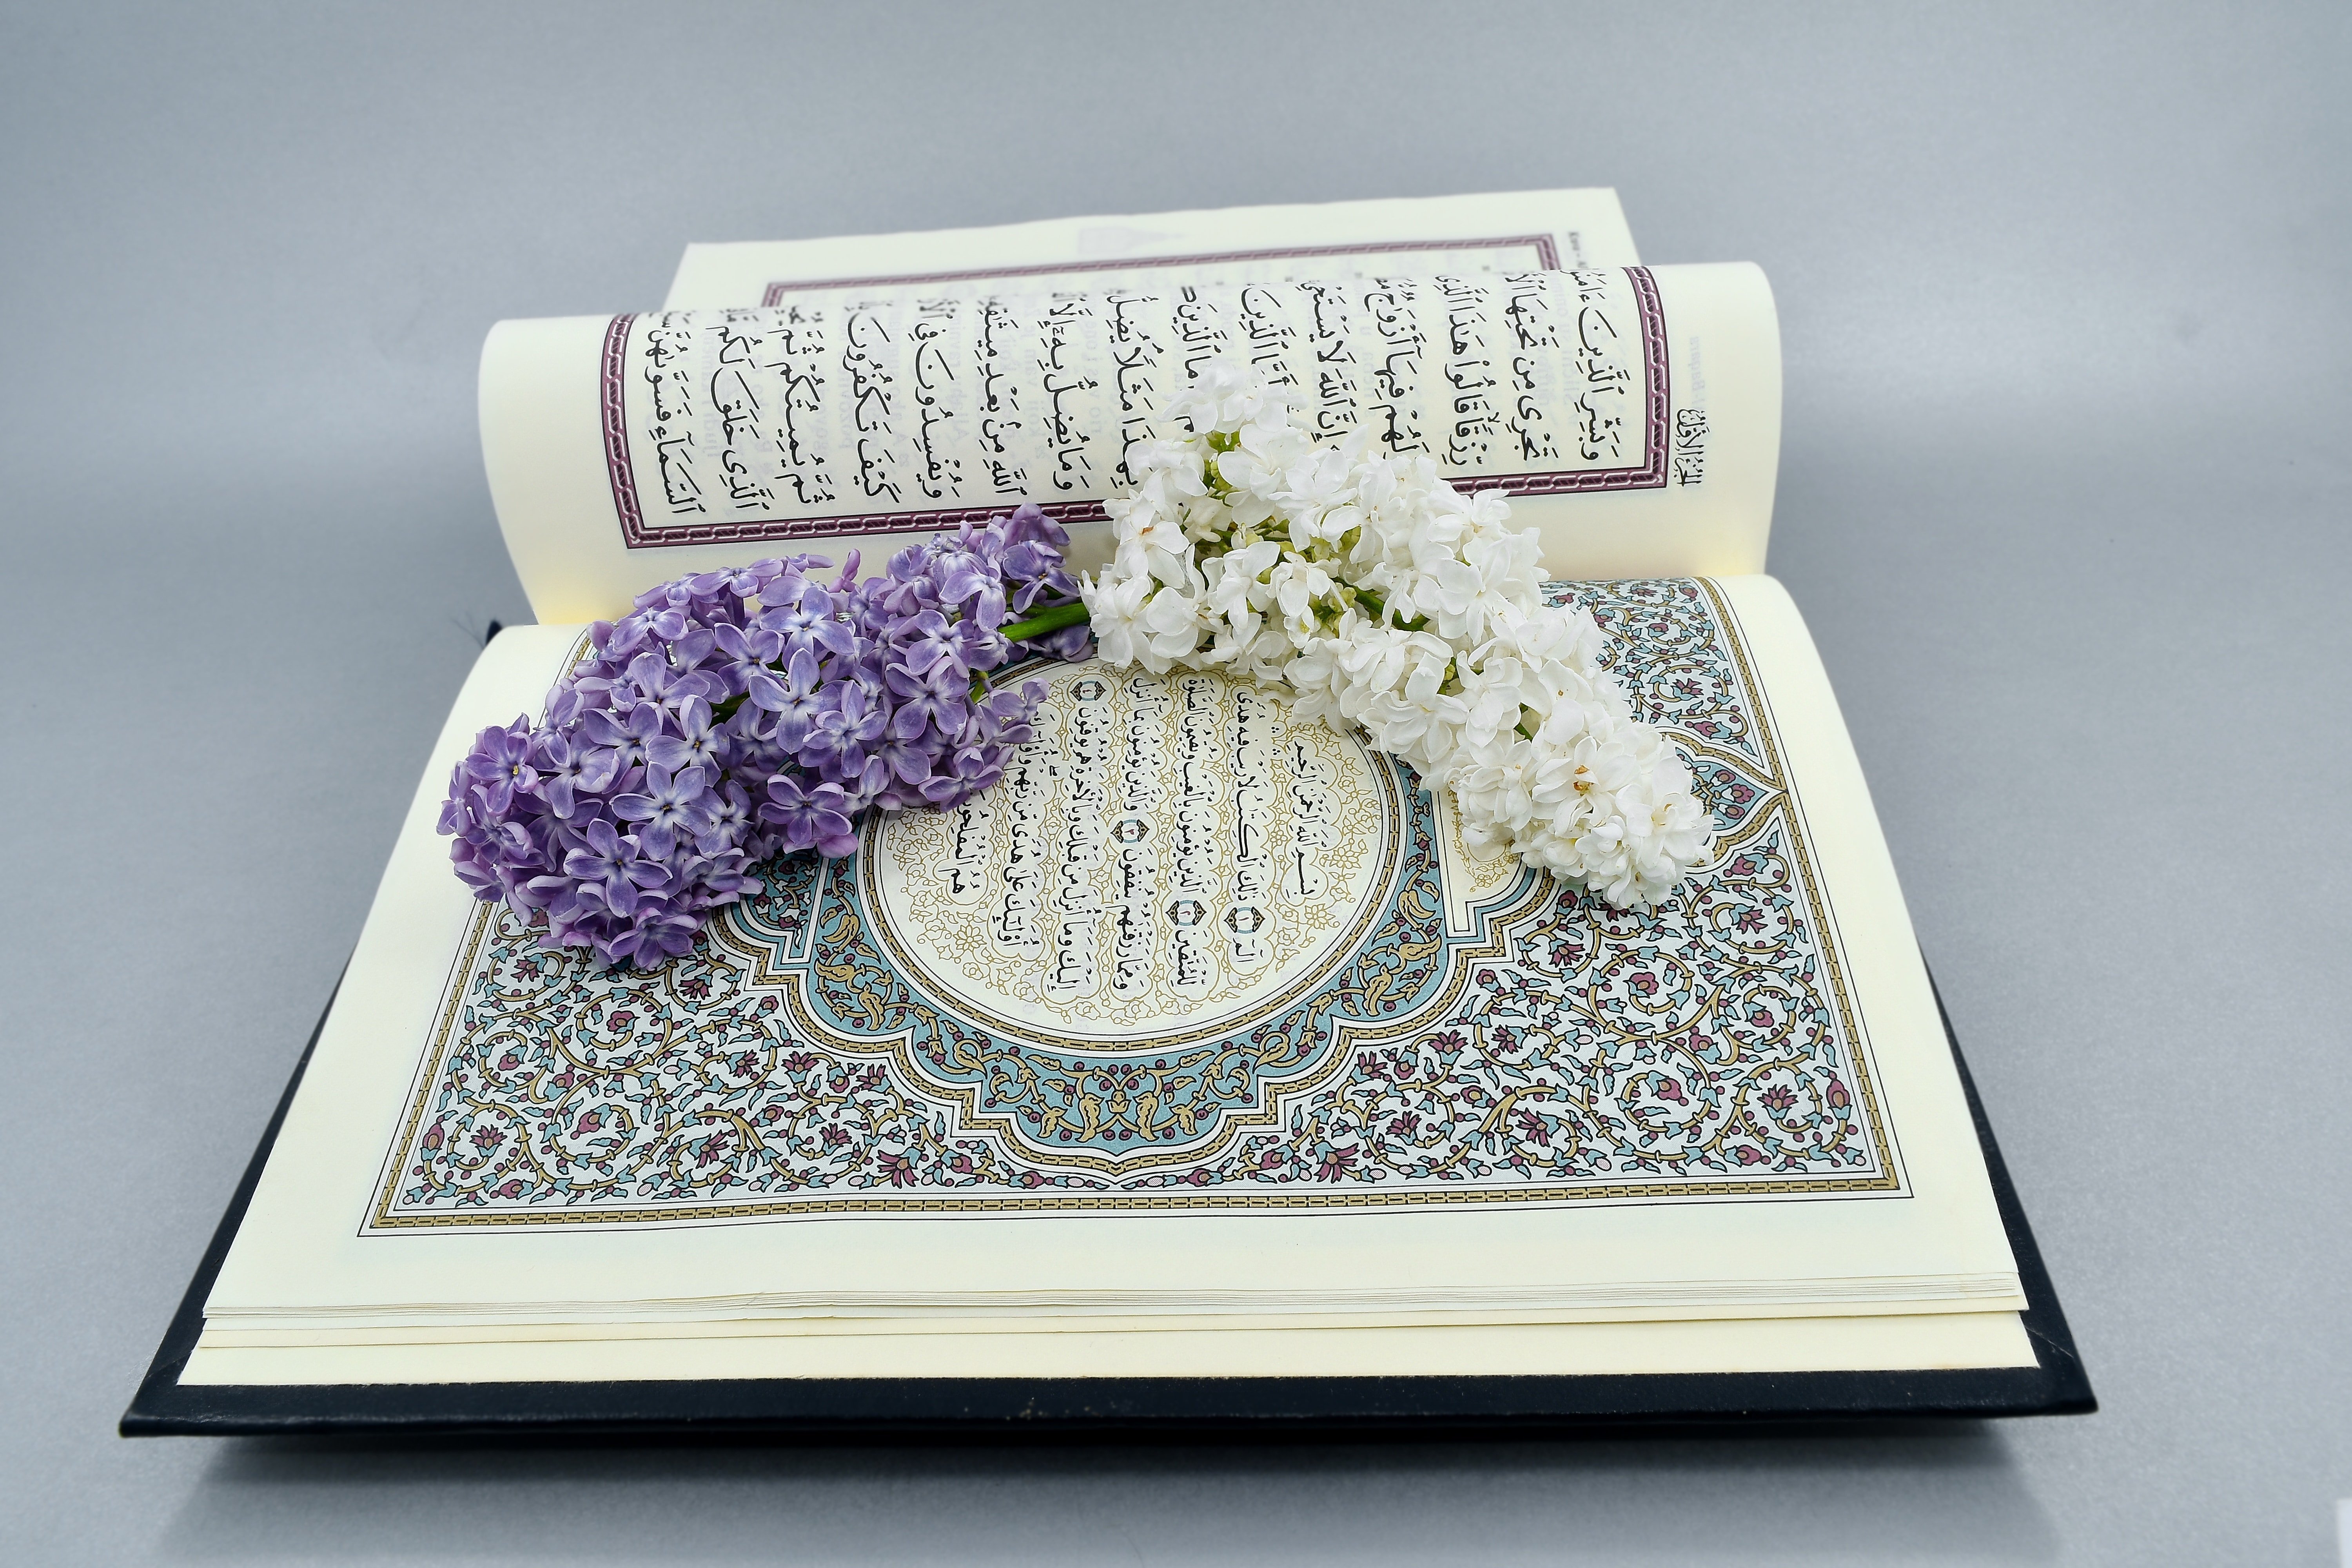 ٱلْجُزْءُ ٱلْأَوَّلُ
وَبَشِّرِ ٱلَّذِينَ
تَجْرِى مِن تَحْتِهَا
رِّزْقًا قَالُوا۟ هَٰذَا ٱلَّذِى
لَهُمْ فِيهَآ أَزْوَٰجٌ
إِنَّ ٱللَّهَ لَا يَسْتَحْىِۦٓ
ٱلَّذِينَ
ٱلَّذِينَ
بِهَٰذَا مَثَلًا يُضِلُّ
وَمَا يُضِلُّ بِهِۦٓ إِلَّا
ٱللَّهِ مِنۢ بَعْدِ مِيثَٰقِهِ
وَيُفْسِدُونَ فِى
كَيْفَ تَكْفُرُونَ
ثُمَّ يُمِيتُكُمْ ثُمَّ
ٱلَّذِى خَلَقَ لَكُم
ٱلسَّمَآءِ فَسَوَّىٰهُنَّ
بِسْمِ ٱللَّهِ ٱلرَّحْمَٰنِ ٱلرَّحِيمِ
الٓمٓ ١ ذَٰلِكَ ٱلْكِتَٰبُ لَا رَيْبَ فِيهِ هُدًى
لِّلْمُتَّقِينَ ٢ ٱلَّذِينَ يُؤْمِنُونَ بِٱلْغَيْبِ وَيُقِيمُونَ ٱلصَّلَوٰةَ
وَمِمَّا رَزَقْنَٰهُمْ يُنفِقُونَ ٣ وَٱلَّذِينَ يُؤْمِنُونَ بِمَآ أُنزِلَ
إِلَيْكَ وَمَآ أُنزِلَ مِن قَبْلِكَ وَبِٱلْءَاخِرَةِ هُمْ يُوقِنُونَ ٤
أُو۟لَٰٓئِكَ عَلَىٰ هُدًى مِّن رَّبِّهِمْ
هُمُ ٱلْمُفْلِحُونَ